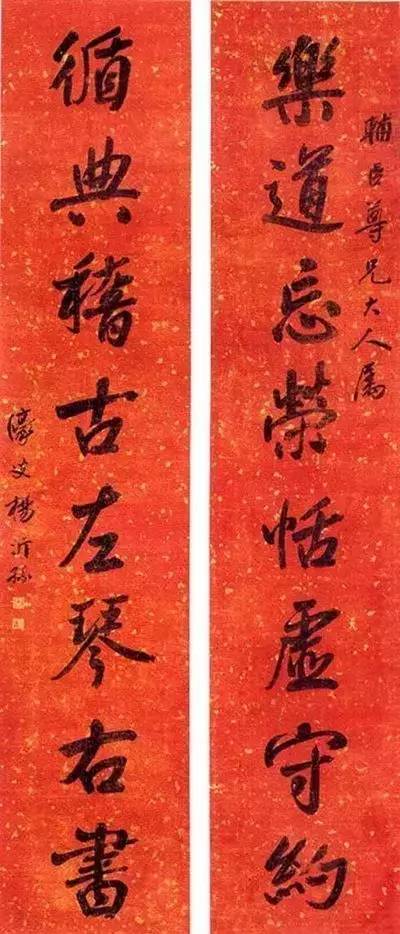 輔臣尊兄大人属
樂道忘榮恬虛守約
循典稽古左琴右書
濠叟楊沂孫